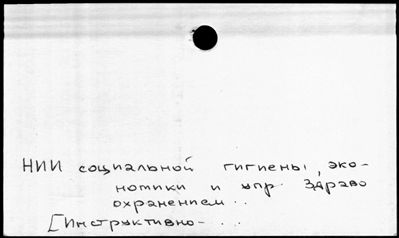 НИИ социальной гигиены, эко-
номики и упр. Здраво
охранением..
[Инструктивно-...